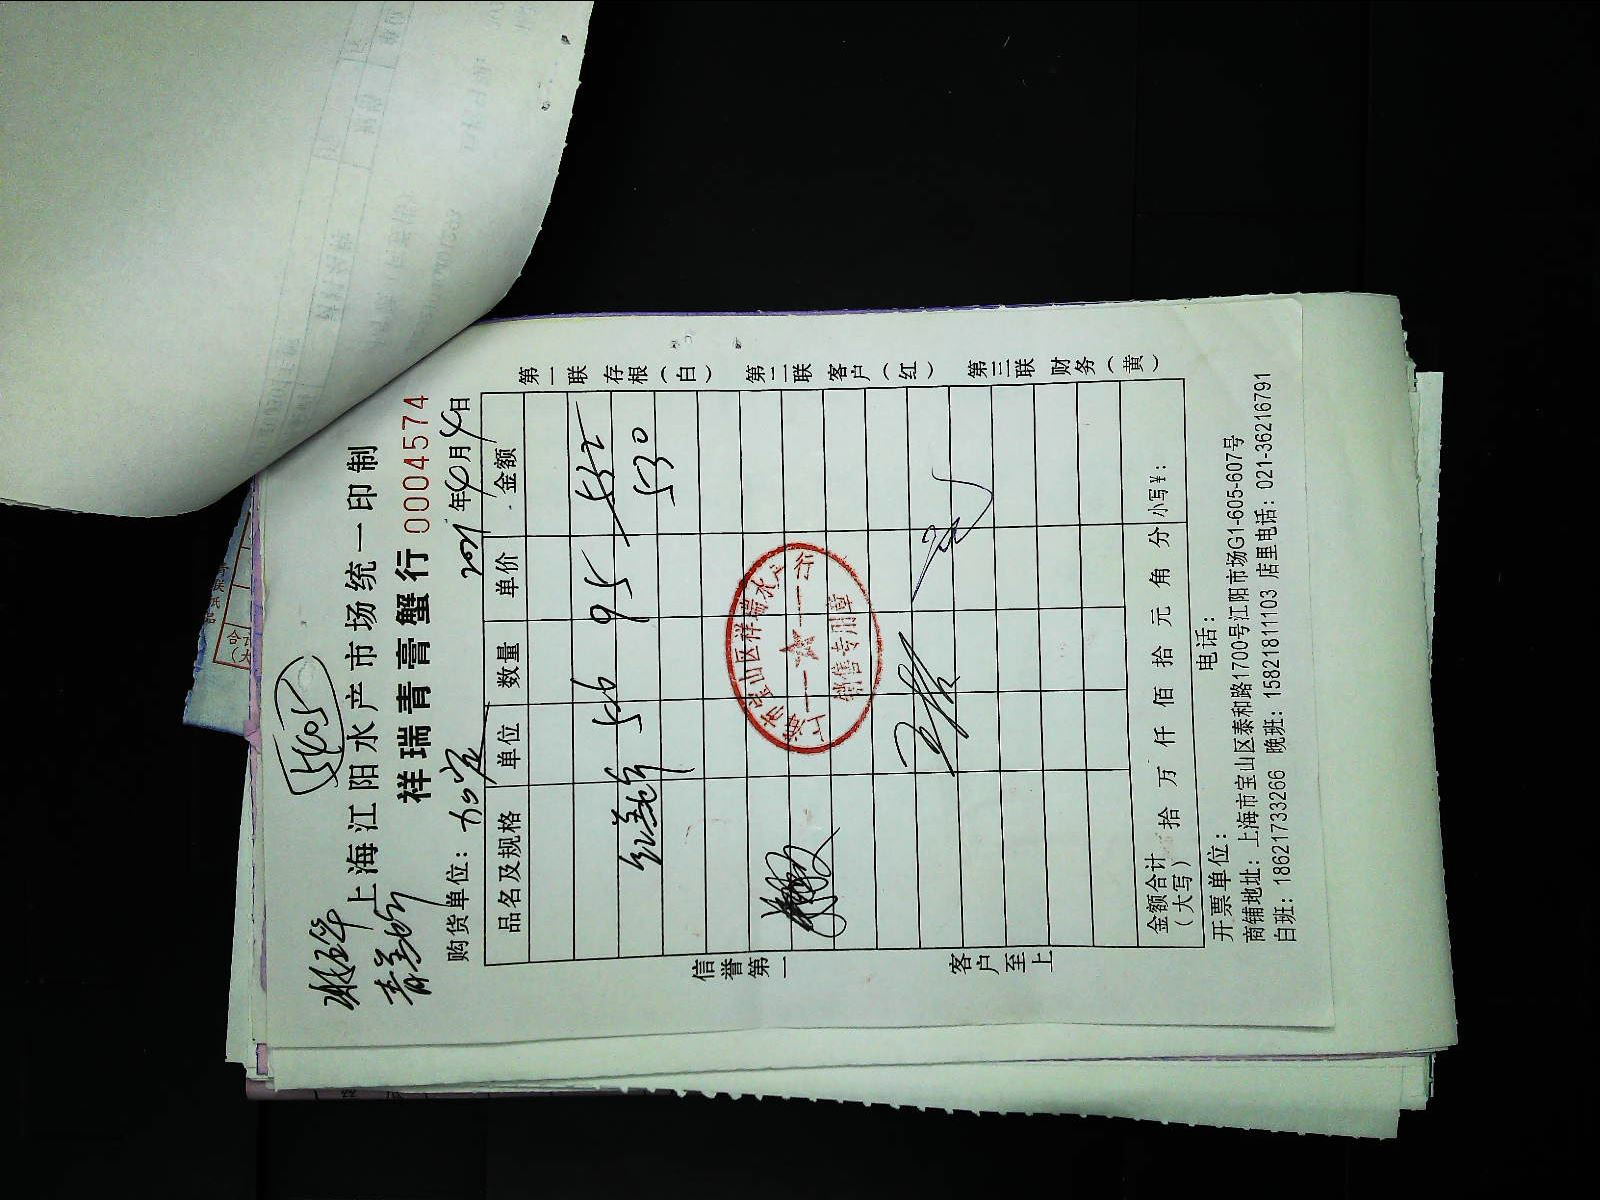 5405
上海江阳水产市场统一印制
祥瑞青膏蟹行 0004574
购货单位： 2021年4月4日
品名及规格 单位 数量 单价 金额
红膏蟹 5.6 95 532
530
上海市宝山区祥瑞水产行
销售专用章
金额合计（大写） 拾 万 仟 佰 拾 元 角 分 小写¥：
开票单位： 电话：
商铺地址：上海市宝山区泰和路1700号江阳市场G1-605-607号
白班：18621733266 晚班：15821811103 店里电话：021-36216791
信誉第一
客户至上
第一联 存根（白）
第二联 客户（红）
第三联 财务（黄）